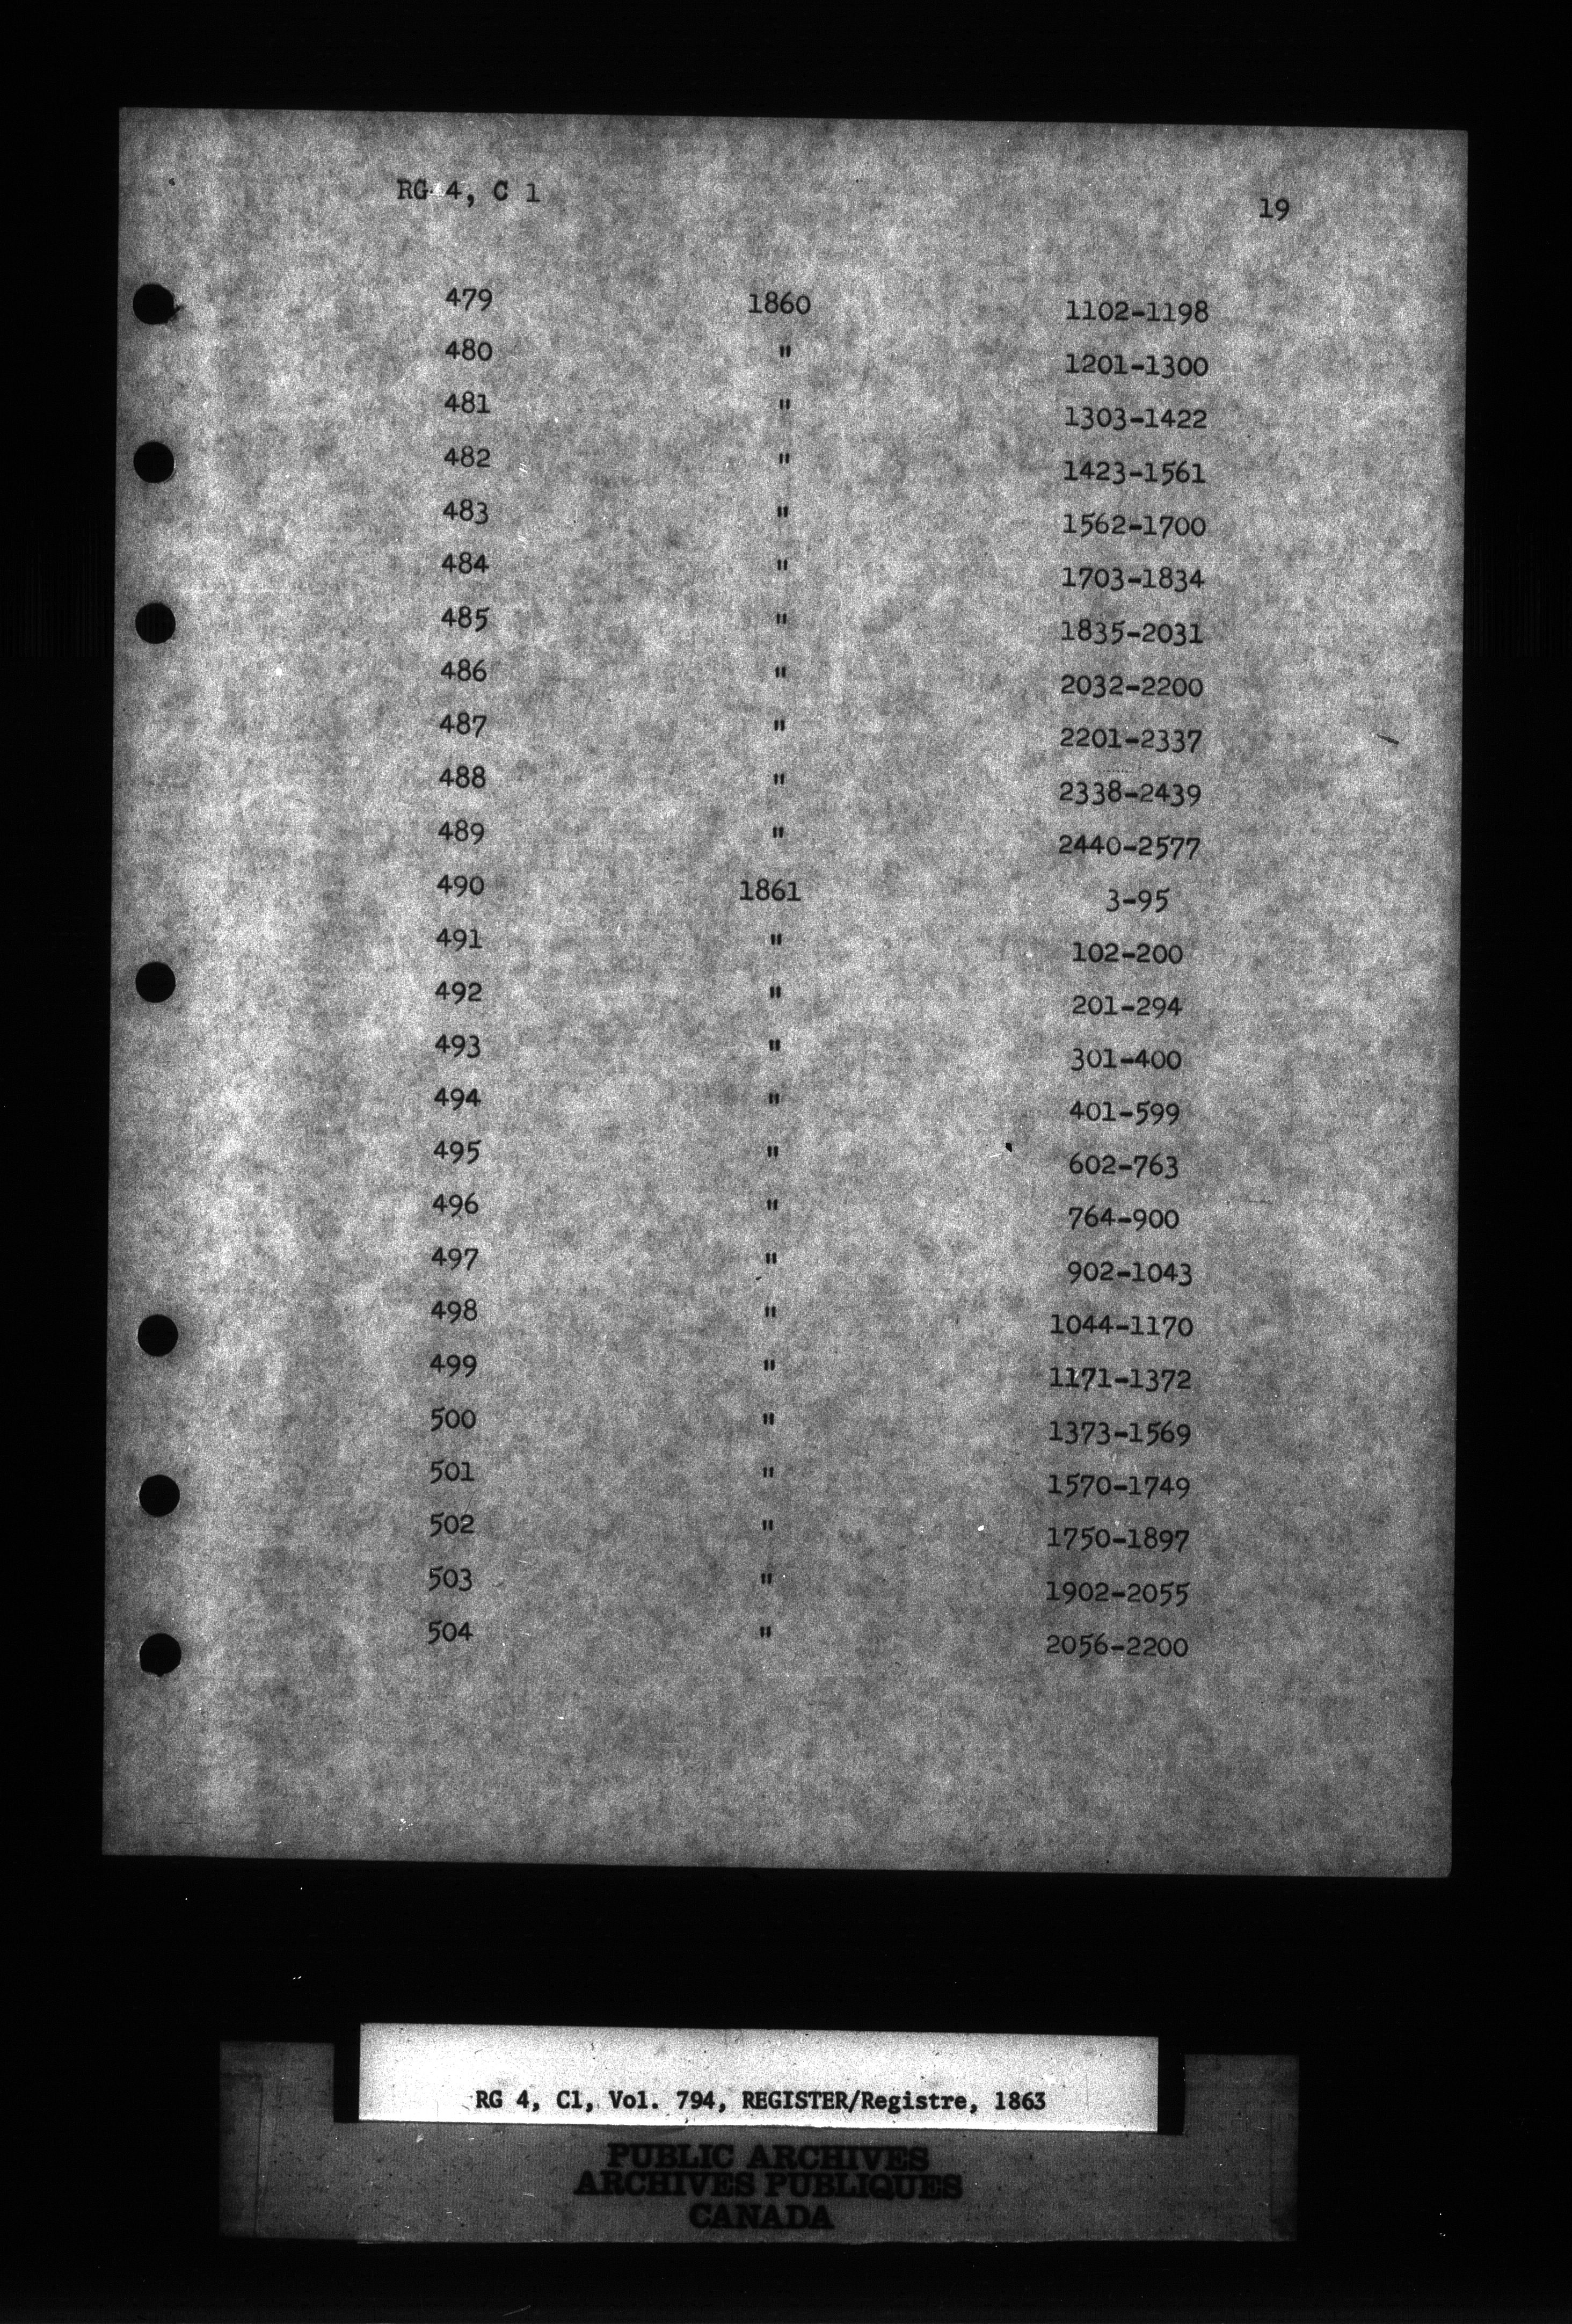 RG 4, C 1 19
479 1860 1102-1198
480 " 1201-1300
481 " 1303-1422
482 " 1423-1561
483 " 1562-1700
484 " 1703-1834
485 " 1835-2031
486 " 2032-2200
487 " 2201-2337
488 " 2338-2439
489 " 2440-2577
490 1861 3-95
491 " 102-200
492 " 201-294
493 " 301-400
494 " 401-599
495 " 602-763
496 " 764-900
497 " 902-1043
498 " 1044-1170
499 " 1171-1372
500 " 1373-1569
501 " 1570-1749
502 " 1750-1897
503 " 1902-2055
504 " 2056-2200
RG 4, C1, Vol. 794, REGISTER/Registre, 1863
PUBLIC ARCHIVES
ARCHIVES PUBLIQUES
CANADA